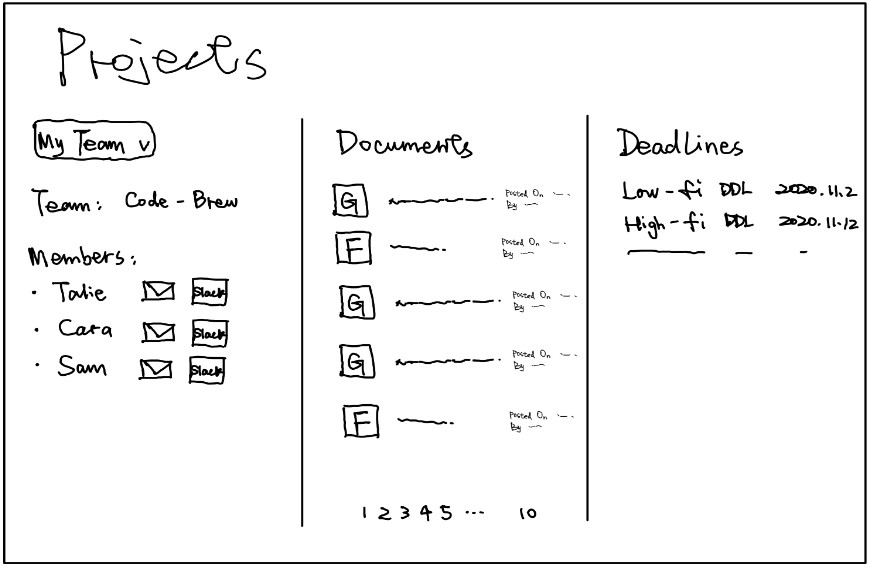 Projects
My Team v
Team: Code-Brew
Members:
· Talie Slack
· Cara Slack
· Sam Slack
Documents
G Posted On
By
F Posted On
By
G Posted On
By
G Posted On
By
F Posted On
By
1 2 3 4 5 ... 10
Deadlines
Low-fi DDL 2020.11.2
High-fi DDL 2020.11.12